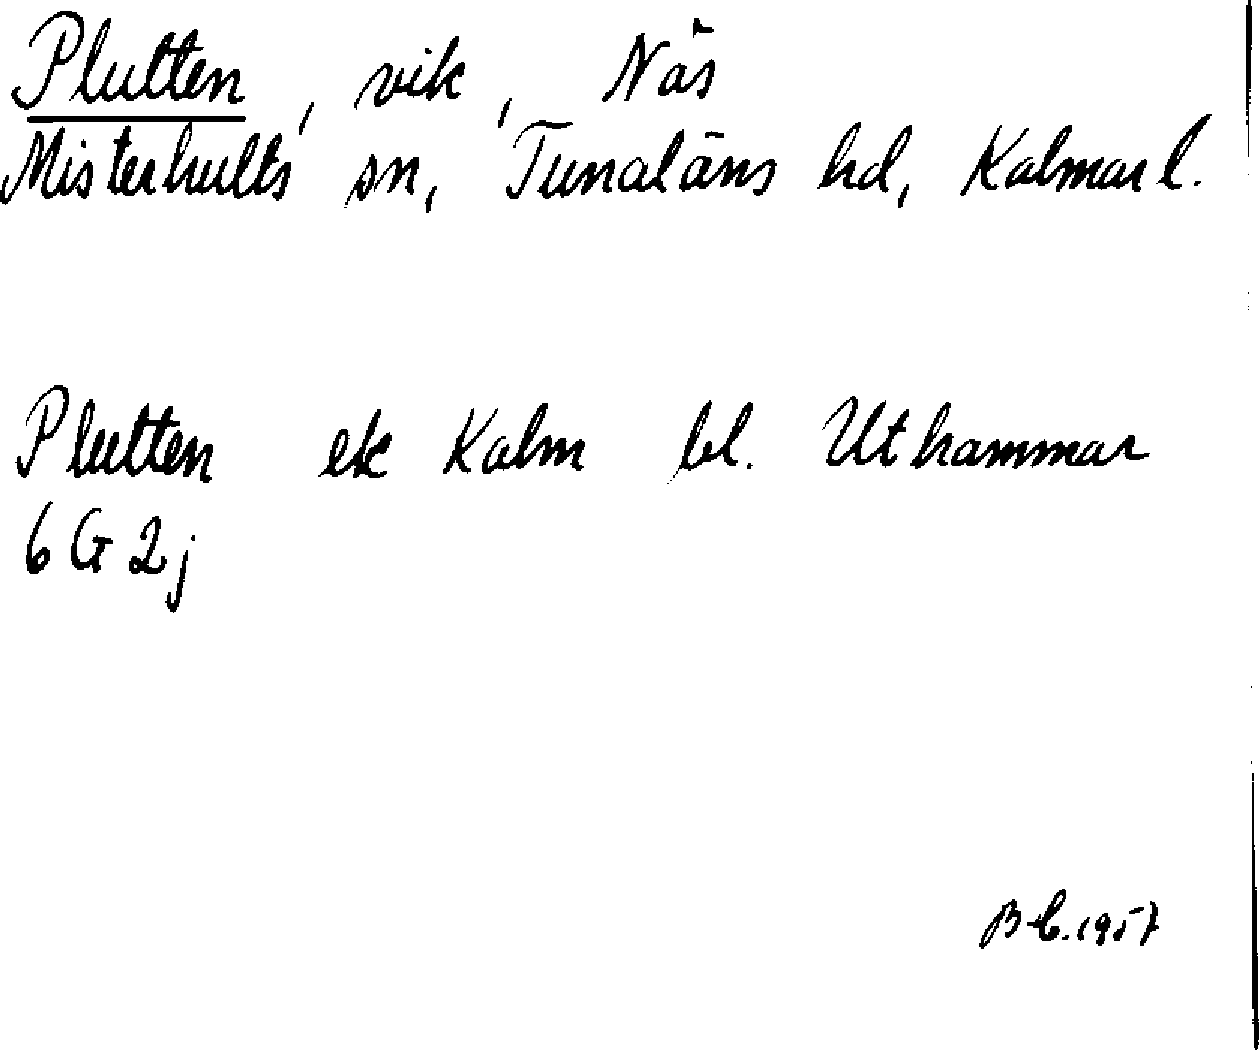 Plutten, vik, Näs
Misterhults sn, Tunaläns hd, Kalmar l.
Plutten ek Kalm bl. Uthammar
6G2j
B-C. 1957